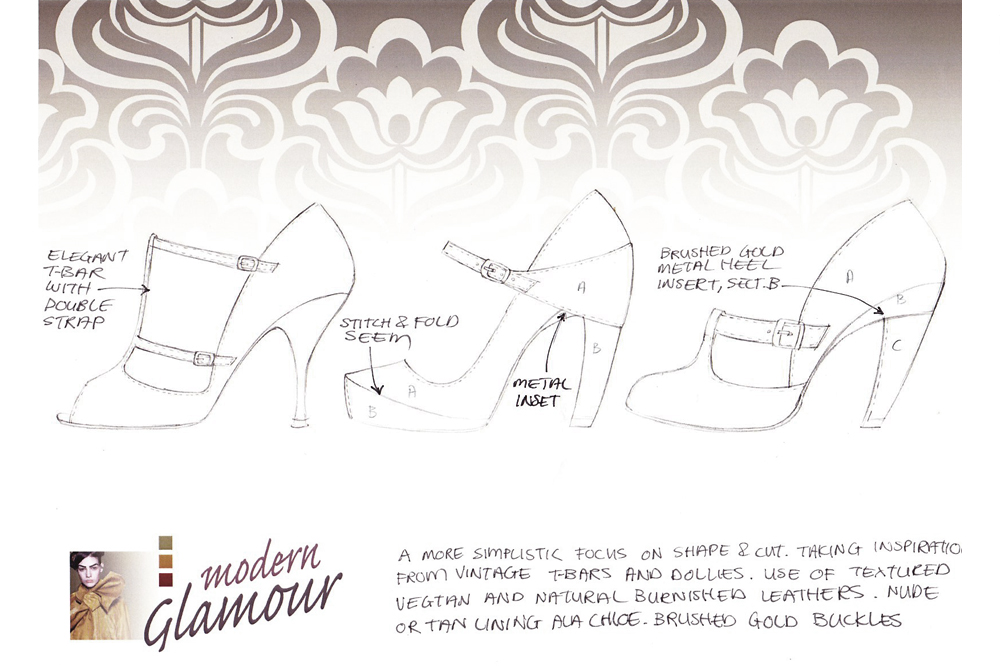 ELEGANT
T-BAR
WITH
DOUBLE
STRAP
STITCH & FOLD
SEEM
A
B
A
B
METAL
INSET
BRUSHED GOLD
METAL HEEL
INSERT, SECT.B
A
B
C
modern
Glamour
A MORE SIMPLISTIC FOCUS ON SHAPE & CUT. TAKING INSPIRATIO
FROM VINTAGE T-BARS AND DOLLIES. USE OF TEXTURED
VEGTAN AND NATURAL BURNISHED LEATHERS. NUDE
OR TAN LINING ALA CHLOE. BRUSHED GOLD BUCKLES